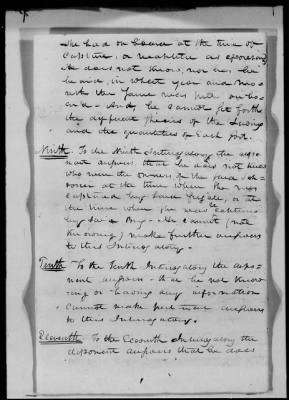 She had on board at the time of
Capture, or recapture as aforesaid
He does not know, nor has he
heard, in what year and
with the same was
and he cannot set forth
the different species of the
and the quantities of Each sort.
Ninth To the Ninth Interrogatory the depo-
nent answers that he does not know
who were the owners of the said Sch-
ooner at the time when she was
captured by or at
the time when she was captured
by he cannot (not
knowing) make further answers
to this Interrogatory.
Tenth To the Tenth Interrogatory the depo-
nent answers that he not know
ing or having any information
Cannot make further answers
to this Interrogatory.
Eleventh To the Eleventh Interrogatory the
deponent answers that he does